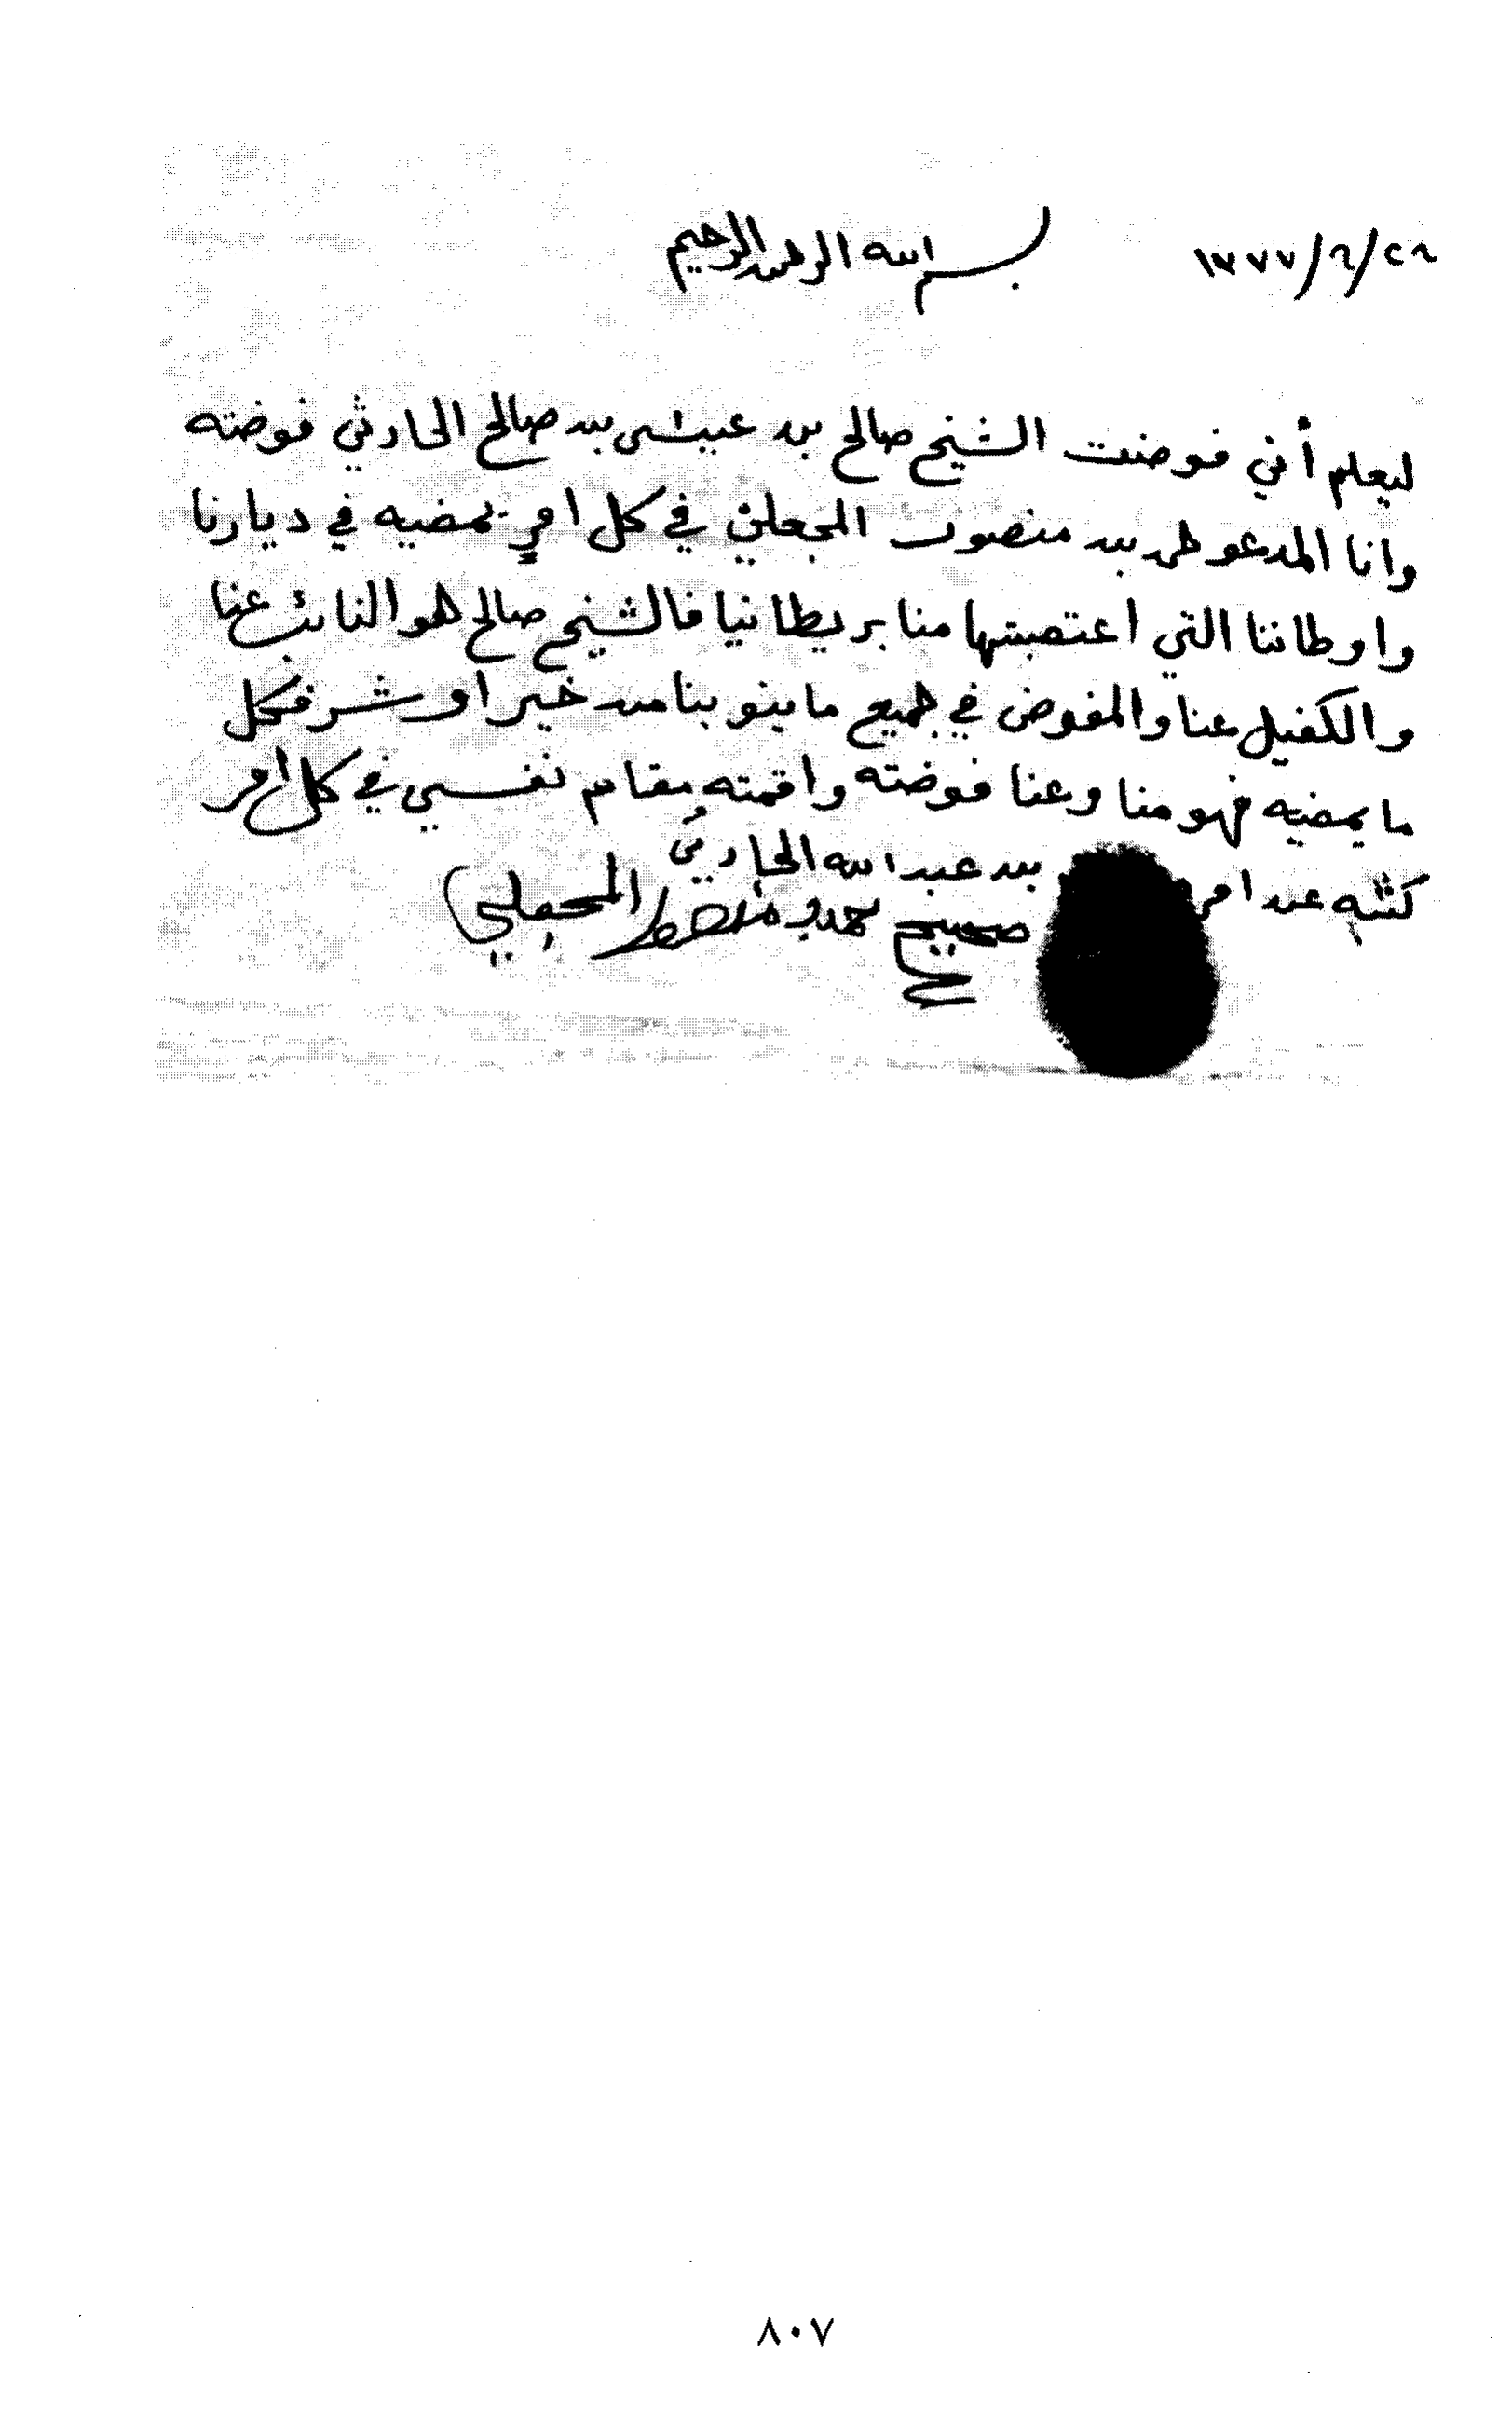 بسم الله الرحمن الرحيم
١٣٧٧/٦/٢٨
ليعلم أني فوضت الشيخ صالح بن عيسى بن صالح الحارثي فوضته
وانا المدعو حمد بن منصور المجعلي في كل امرٍ يمضيه في ديارنا
واوطاننا التي اغتصبتها منا بريطانيا فالشيخ صالح هو النائب عنا
والكفيل عنا والمفوض في جميع ما ينوبنا من خير او شر فكل
ما يمضيه فهو منا وعنا فوضته واقمته مقام نفسي في كل امر
كتبه عن امره بن عبدالله الحارثي
صحيح حمد بن منصور المجعلي
٨٠٧